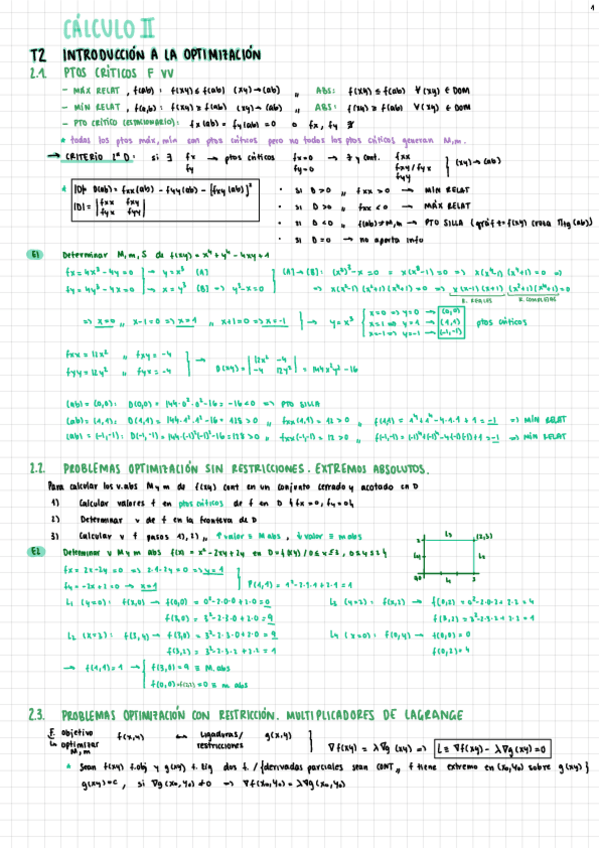 1
CÁLCULO II
T2 INTRODUCCIÓN A LA OPTIMIZACIÓN
2.1. PTOS CRÍTICOS F VV
- MÁX RELAT, f(ab): f(xy) ≤ f(ab) (xy)→(ab) ,, ABS: f(xy) ≤ f(ab) ∀(xy) ∈ DOM
- MÍN RELAT, f(a,b): f(xy) ≥ f(ab) (xy)→(ab) ,, ABS: f(xy) ≥ f(ab) ∀(xy) ∈ DOM
- PTO CRÍTICO (ESTACIONARIO): fx(ab) = fy(ab) = 0 o fx, fy ∄
* todos los ptos máx, mín son ptos críticos pero no todos los ptos críticos generan M,m.
→ CRITERIO 2ª D: si ∃ fx fy → ptos críticos fx=0 fy=0 → ∃ y cont. fxx fxy/fyx fyy } (xy)→(ab)
|D| D(ab) = fxx(ab) · fyy(ab) - [fxy(ab)]²
|D| = |fxx fxy fyx fyy|
· si D>0 ,, fxx > 0 → MIN RELAT
· si D>0 ,, fxx < 0 → MÁX RELAT
· si D<0 ,, f(ab) ≠ M,m → PTO SILLA (gráf t=f(xy) cruza πtg(ab))
· si D=0 → no aporta info
E1 Determinar M, m, S de f(xy) = x⁴+y⁴-4xy+1
fx = 4x³-4y = 0 → y = x³ [A]
fy = 4y³-4x = 0 → x = y³ [B] => y³-x=0
[A]→[B]: (x³)³-x = 0 = x(x⁸-1) = 0 => x(x⁴-1)(x⁴+1) = 0 =>
=> x(x²-1)(x²+1)(x⁴+1) = 0 => x(x-1)(x+1)(x²+1)(x⁴+1) = 0
R. REALES R. COMPLEJAS
=> x=0 ,, x-1=0 => x=1 ,, x+1=0 => x=-1 } → y=x³ { x=0 => y=0 → (0,0)
x=1 => y=1 → (1,1) ptos críticos
x=-1 => y=-1 → (-1,-1)
fxx = 12x² ,, fxy = -4
fyy = 12y² ,, fyx = -4
D(xy) = |12x² -4 -4 12y²| = 144x²y²-16
(ab) = (0,0): D(0,0) = 144·0²·0²-16 = -16<0 => PTO SILLA
(ab) = (1,1): D(1,1) = 144·1²·1²-16 = 128>0 ,, fxx(1,1) = 12>0 ,, f(1,1) = 1⁴+1⁴-4·1·1+1 = -1 => MÍN RELAT
(ab) = (-1,-1): D(-1,-1) = 144·(-1)²(-1)²-16 = 128>0 ,, fxx(-1,-1) = 12>0 ,, f(-1,-1) = (-1)⁴+(-1)⁴-4(-1)(-1)+1 = -1 => MÍN RELAT
2.2. PROBLEMAS OPTIMIZACIÓN SIN RESTRICCIONES. EXTREMOS ABSOLUTOS.
Para calcular los v.abs M y m de f(xy) cont en un conjunto cerrado y acotado en D
1) Calcular valores f en ptos críticos de f en D
2) Determinar v de f en la frontera de D
3) Calcular v f pasos 1), 2) ,, ↑valor ≡ M abs, ↓valor ≡ m abs
E2 Determinar v M y m abs f(x) = x²-2xy+2y en D={(xy)/0≤x≤3, 0≤y≤2}
fx = 2x-2y = 0 => 2·1-2y = 0 => y=1
fy = -2x+2 = 0 → x=1
f(1,1) = 1²-2·1·1+2·1 = 1
L₁ (y=0): f(x,0) → f(0,0) = 0²-2·0·0+2·0 = 0
f(3,0) = 3²-2·3·0+2·0 = 9
L₂ (x=3): f(3,y) → f(3,0) = 3²-2·3·0+2·0 = 9
f(3,2) = 3²-2·3·2+2·2 = 1
L₃ (y=2): f(x,2) → f(0,2) = 0²-2·0·2+2·2 = 4
f(3,2) = 3²-2·3·2+2·2 = 1
L₄ (x=0): f(0,y) → f(0,0) = 0
f(0,2) = 4
→ f(1,1) = 1 → { f(3,0) = 9 ≡ M. abs
f(0,0) = 0 ≡ m abs
2.3. PROBLEMAS OPTIMIZACIÓN CON RESTRICCIÓN. MULTIPLICADORES DE LAGRANGE
F. objetivo
↳ optimizar M,m
f(x,y) ↔ Ligaduras/ restricciones g(x,y)
∇f(xy) = λ∇g(xy) => L ≡ ∇f(xy) - λ∇g(xy) = 0
* Sean f(xy) f.obj y g(xy) f. lig dos f. / {derivadas parciales sean CONT ,, f tiene extremo en (x₀,y₀) sobre g(xy)}
g(xy)=c, si ∇g(x₀,y₀) ≠ 0 => ∇f(x₀,y₀) = λ∇g(x₀,y₀)